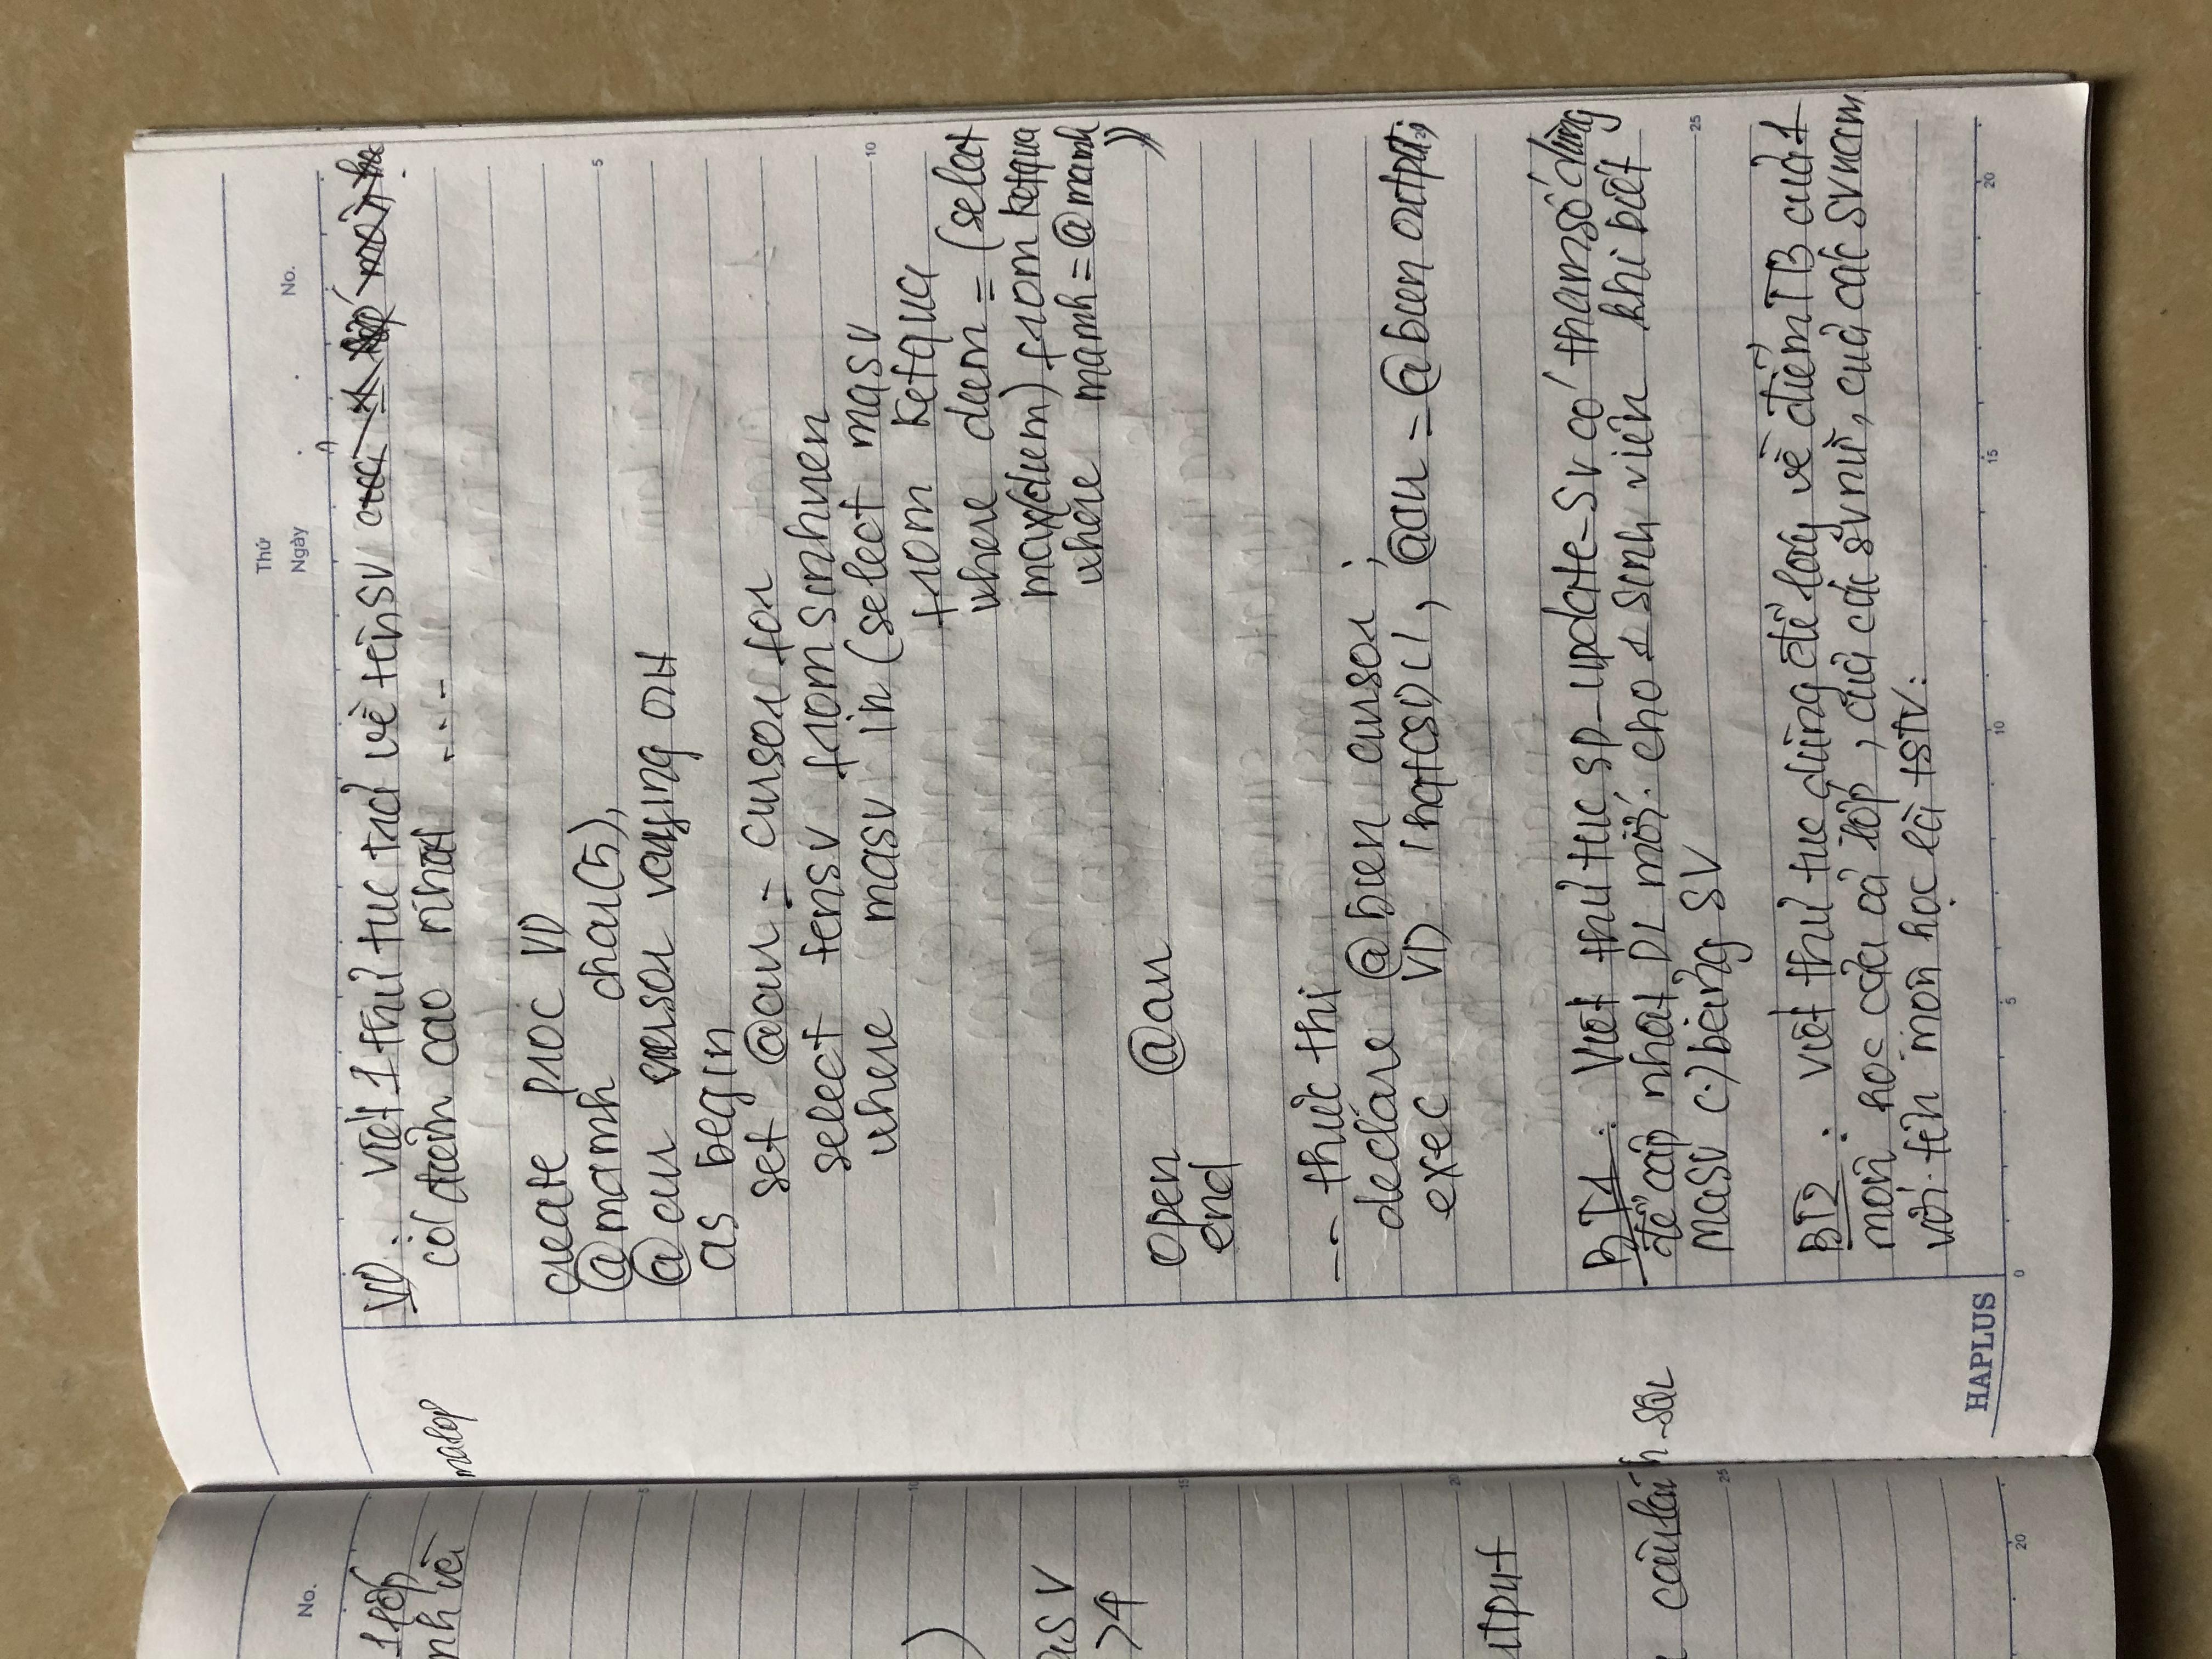 No.
1 lớp
nh và
)
asV
>4
utput
câu lành_SQL
20
Thứ
Ngày
No.
malop
VD: Viết 1 thủ tục trả về tên SV của 1 lớp môn học
có điểm cao nhất ...
create proc VD
@mamh char(5),
@cur cursor varying out
as begin
set @cur = cursor for
select tensv from sinhvien
where masv in (select masv
from ketqua
where diem = (select
max(diem) from ketqua
where mamh = @mamh
))
open @cur
end
-- thực thi
declare @bien cursor ;
exec VD 'hqtCSDL', @cur = @bien output;
BT1: Viết thủ tục sp_update_SV có tham số dùng
để cập nhật DL mới cho 1 sinh viên khi biết
masv (.) bảng SV
BT2: Viết thủ tục dùng để lấy về điểm TB của 1
môn học của cả lớp, của các sv nữ, của các SV nam
với tên môn học là tSTV.
HAPLUS
0 5 10 15 20